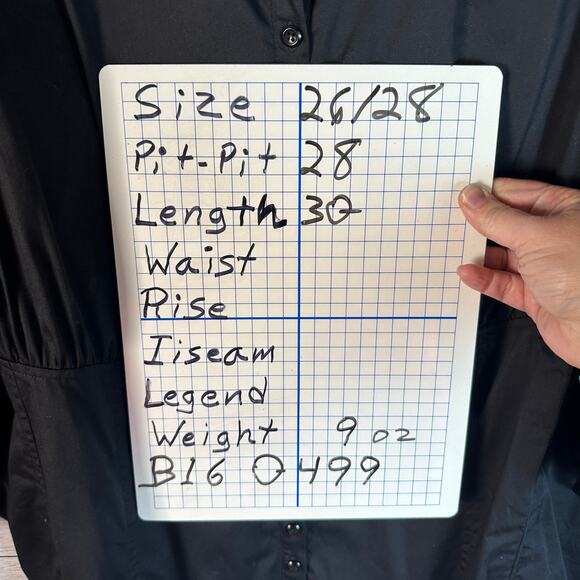 Size 26/28
Pit-Pit 28
Length 30
Waist
Rise
Iiseam
Legend
Weight 9 oz
B16 0499